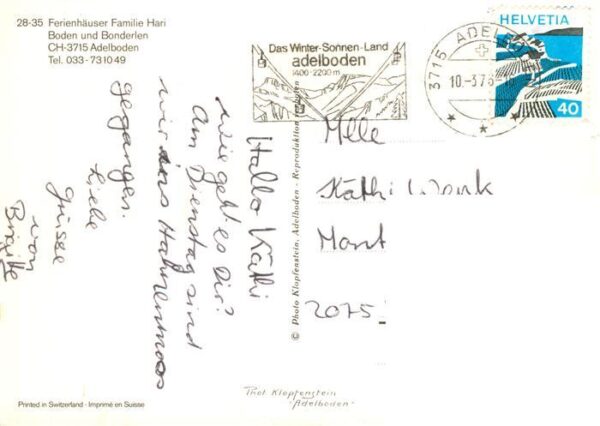 28-35 Ferienhäuser Familie Hari
Boden und Bonderlen
CH-3715 Adelboden
Tel. 033-731049
Das Winter-Sonnen-Land
adelboden
1400-2200 m
3715 ADELB
10.-3.76-1
HELVETIA
40
Hallo Käthi
wie geht es Dir?
Am Dienstag sind
wir ins Hahnenmoos
gegangen.
Liebe
Grüsse
von
Brigitte
© Photo Klopfenstein, Adelboden - Reproduktion
Mlle
Käthi
Mont
2075
Phot. Klopfenstein
"Adelboden"
Printed in Switzerland - Imprimé en Suisse